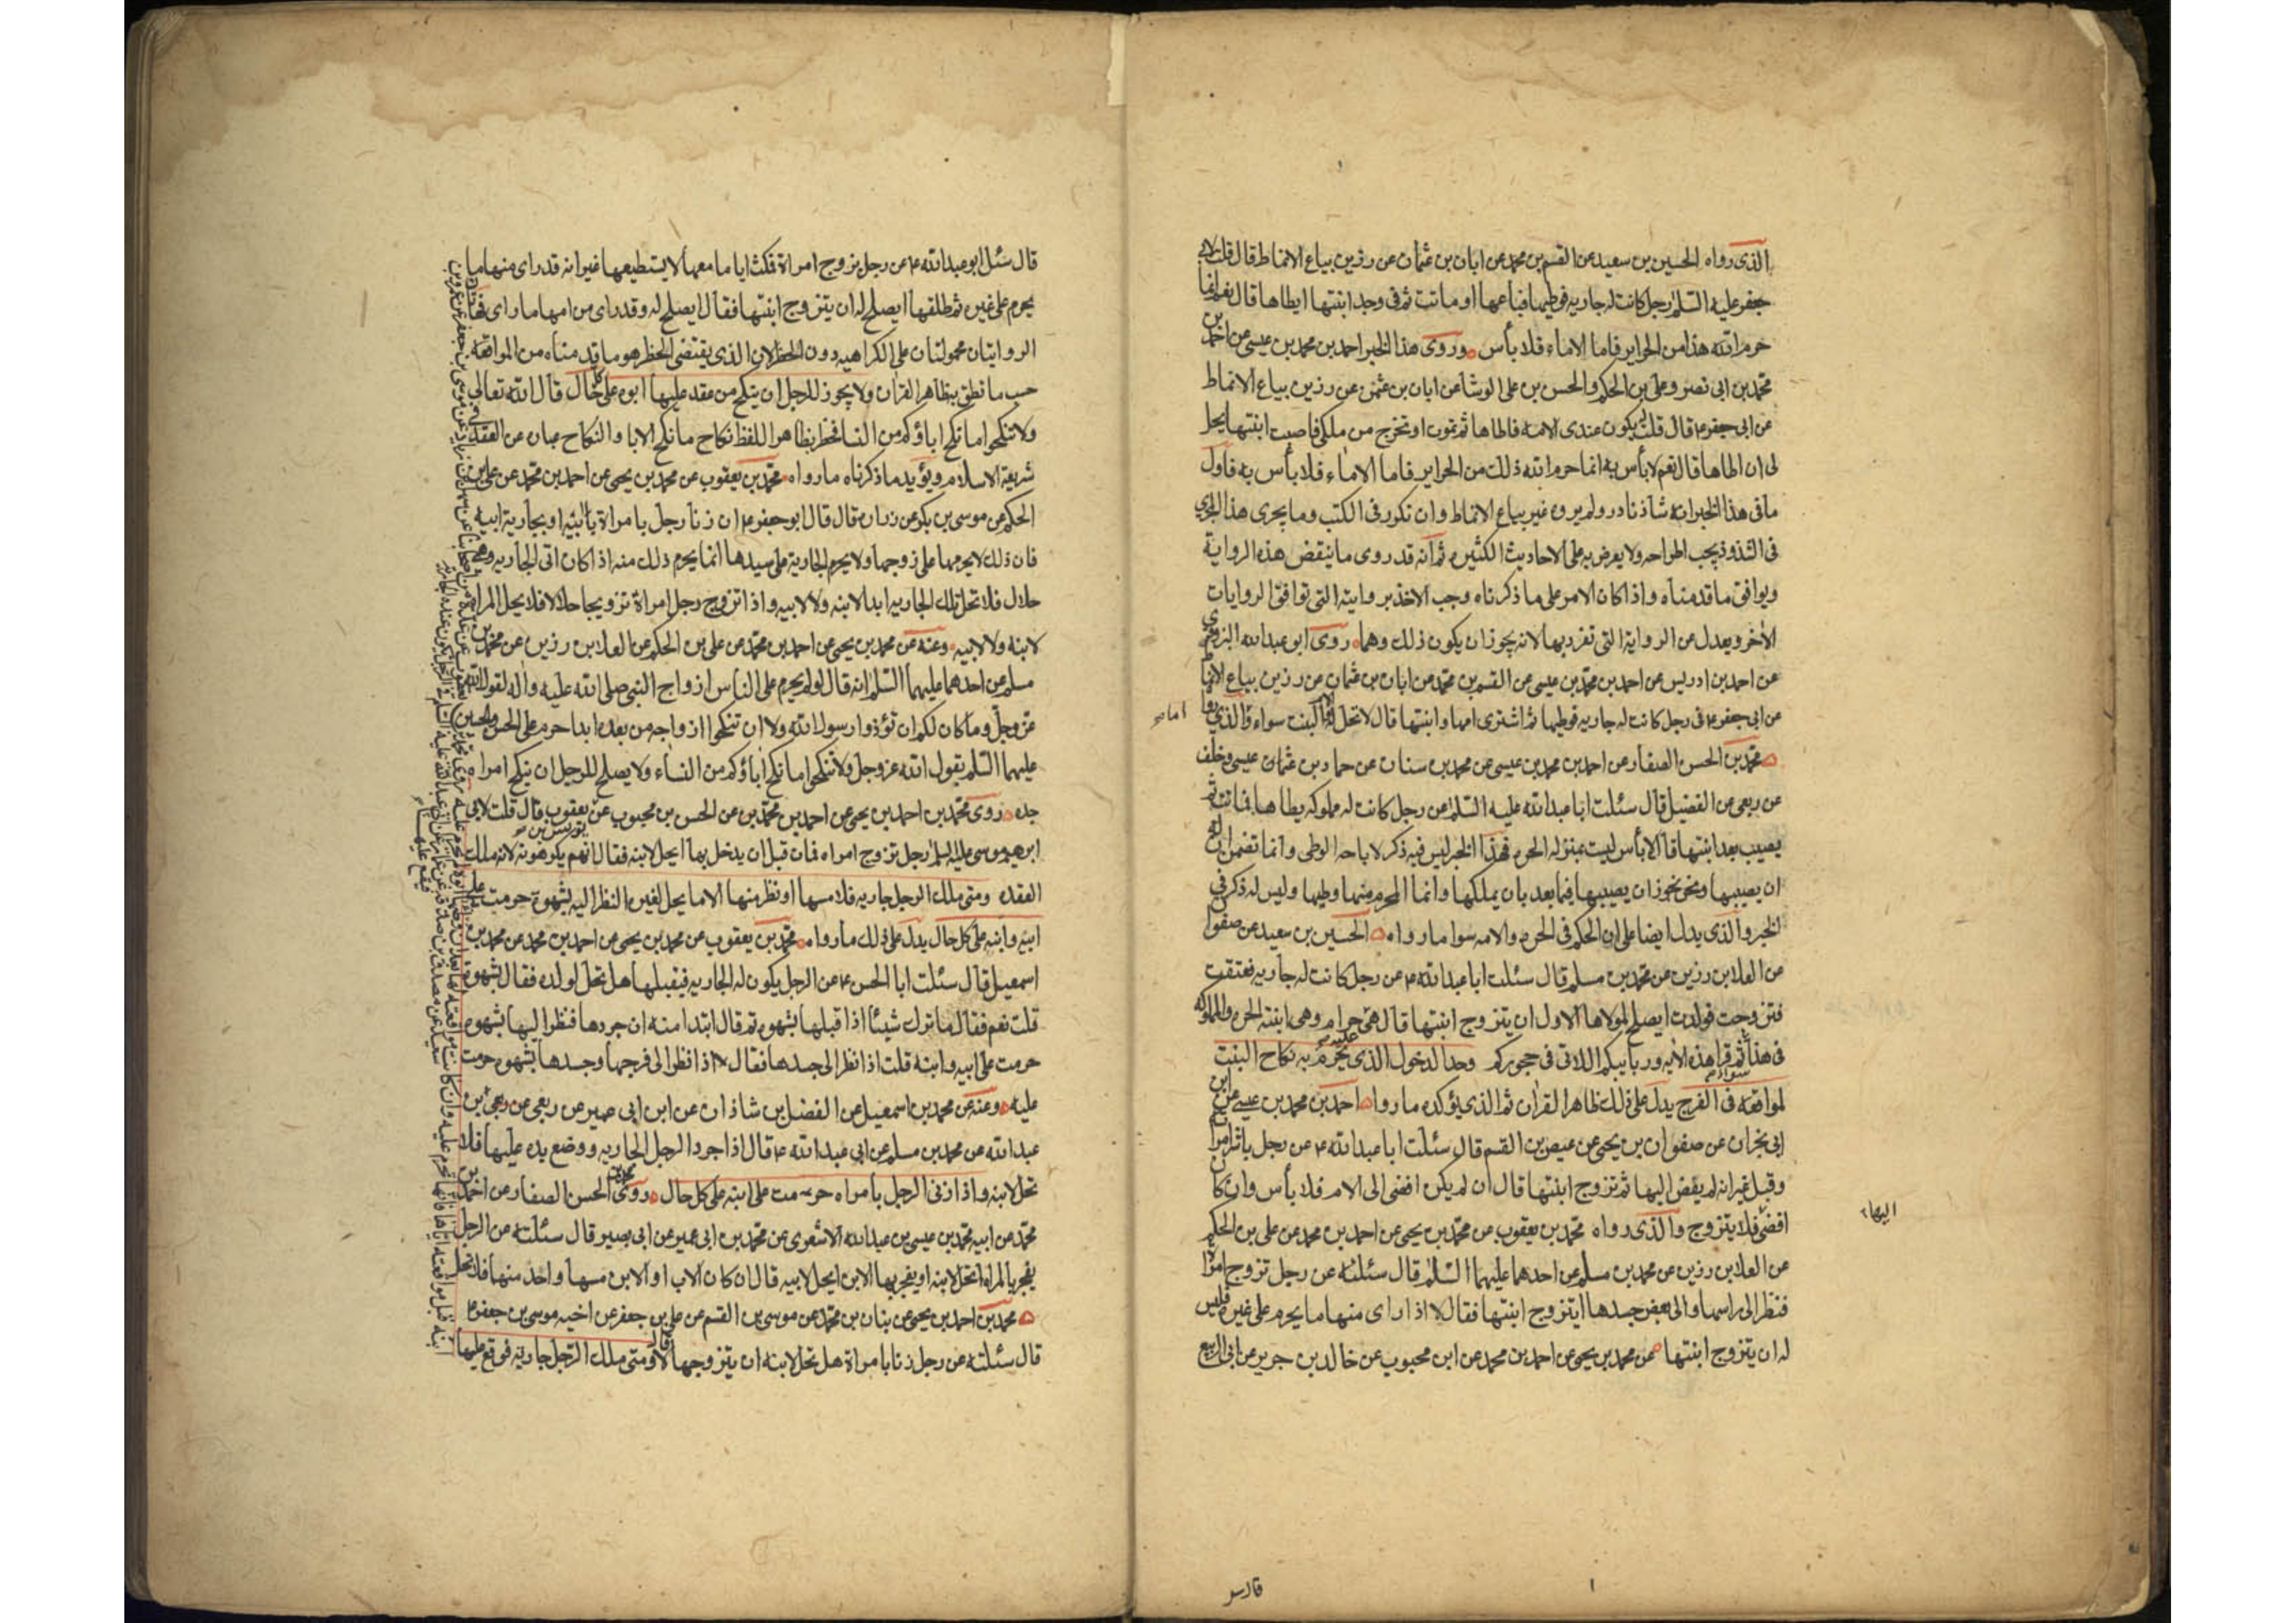 الذى رواه الحسين بن سعيد عن القسم بن محمد عن ابان بن عثمان عن رزين بياع الانماط قال قلت لابى
جعفر عليه السلم رجل كانت له جاريه فوطيها فباعها او ماتت ثم وجد ابنتها ايطاها قال نعم انما
حرم الله هذا من الحراير فاما الاماء فلا بأس وروى هذا الخبر احمد بن محمد بن عيسى عن احمد بن
محمد بن ابى نصر وعلى بن الحكم والحسن بن على الوشا عن ابان بن عثمن عن رزين بياع الانماط
عن ابى جعفر ع قال قلت له يكون عندى الامه فاطاها ثم تموت او تخرج من ملكى فاصيب ابنتها يحل
لى ان اطاها قال نعم لا بأس به انما حرم الله ذلك من الحراير فاما الاماء فلا بأس به فاول
ما فى هذا الخبر انه شاذ نادر ولم يروه غير بياع الانماط وان تكرر فى الكتب وما يجرى هذا المجرى
فى الشذوذ يجب اطراحه ولا يعرض به على الاحاديث الكثيره ثم انه قد روى ما ينقض هذه الرواية
ويوافق ما قدمناه واذا كان الامر على ما ذكرناه وجب الاخذ بروايته التى توافق الروايات
الاخر ويعدل عن الرواية التى تفرد بها لانه يجوز ان يكون ذلك وهما روى ابو عبد الله البزوفرى
عن احمد بن ادريس عن احمد بن محمد بن عيسى عن القسم بن محمد عن ابان بن عثمان عن رزين بياع الانماط
عن ابى جعفر ع فى رجل كانت له جاريه فوطيها ثم اشترى امها وابنتها قال لا تحل له الام والبنت سواء والذى رواه
محمد بن الحسن الصفار عن احمد بن محمد بن عيسى عن محمد بن سنان عن حماد بن عثمان عيسى وخلف
عن ربعى عن الفضيل قال سئلت ابا عبد الله عليه السلم عن رجل كانت له مملوكه يطاها فماتت ثم
يصيب بعد ابنتها قال لا بأس ليست بمنزله الحره فهذا الخبر ليس فيه ذكر لاباحه الوطى وانما تضمن ان له
ان يصيبها ونحن نجوز ان يصيبها فيما بعد بان يملكها وانما المحرم منها وطيها وليس له ذكر فى
الخبر والذى يدل ايضا على ان الحكم فى الحره والامه سوا ما رواه الحسين بن سعيد عن صفوان
عن العلا بن رزين عن محمد بن مسلم قال سئلت ابا عبد الله ع عن رجل كانت له جاريه فعتقت
فتزوجت فولدت ايصلح لمولاها الاول ان يتزوج ابنتها قال هى حرام وهى ابنته الحره والمملوكه
فى هذا سواء ثم قرا هذه الايه وربايبكم اللاتى فى حجوركم وحد الدخول الذى يحرم عليه به نكاح البنت
لمواقعه فى الفرج يدل على ذلك ظاهر القران ثم الذى يؤكده ما رواه احمد بن محمد بن عيسى عن ابن
ابى نجران عن صفوان بن يحيى عن عيص بن القسم قال سئلت ابا عبد الله ع عن رجل باشر امراه
وقبل غير انه لم يفض اليها ثم تزوج ابنتها قال ان لم يكن افضى الى الام فلا بأس وان كان
افضى فلا يتزوج والذى رواه محمد بن يعقوب عن محمد بن يحيى عن احمد بن محمد عن على بن الحكم
عن العلا بن رزين عن محمد بن مسلم عن احدهما عليهما السلم قال سئلته عن رجل تزوج امراه
فنظر الى راسها والى بعض جسدها ايتزوج ابنتها فقال لا اذا راى منها ما يحرم على غيره فليس
له ان يتزوج ابنتها عن محمد بن يحيى عن احمد بن محمد عن ابن محبوب عن خالد بن جرير عن ابى الربيع
اليها
قال سئل ابو عبد الله ع عن رجل تزوج امراة فمكث اياما معها لا يستطيعها غير انه قد راى منها ما
يحرم على غيره ثم طلقها ايصلح له ان يتزوج ابنتها فقال ايصلح له وقد راى من امها ما راى فهاتان
الروايتان محمولتان على الكراهيه دون الحظر لان الذى يقتضى الحظر هو ما قدمناه من المواقعه
حسب ما نطق به ظاهر القران ولا يجوز للرجل ان ينكح من عقد عليها ابوه على كل حال قال الله تعالى
ولا تنكحوا ما نكح اباؤكم من النسا فحظر بظاهر اللفظ نكاح ما نكح الابا والنكاح عباره عن العقد فى
شريعة الاسلام ويؤيد ما ذكرناه ما رواه محمد بن يعقوب عن محمد بن يحيى عن احمد بن محمد عن على بن
الحكم عن موسى بن بكر عن زراره قال قال ابو جعفر ع ان زنا رجل بامراة ابيه او بجارية ابيه
فان ذلك لا يحرمها على زوجها ولا يحرم الجارية على سيدها انما يحرم ذلك منه اذا كان اتى الجاريه وهى
حلال فلا تحل تلك الجاريه ابدا لابنه ولا لابيه واذا تزوج رجل امراة تزويجا حلالا فلا يحل المراه
لابنه ولا لابيه وعنه عن محمد بن يحيى عن احمد بن محمد عن على بن الحكم عن العلا بن رزين عن محمد بن
مسلم عن احدهما عليهما السلم انه قال لو لم يحرم على الناس ازواج النبى صلى الله عليه واله لقول الله
عز وجل وما كان لكم ان تؤذوا رسول الله ولا ان تنكحوا ازواجه من بعده ابدا حرم على الحسن والحسين
عليهما السلم بقول الله عز وجل ولا تنكحوا ما نكح اباؤكم من النساء ولا يصلح للرجل ان ينكح امراه
جده روى محمد بن احمد بن يحيى عن احمد بن محمد بن عن الحسن بن محبوب عن يونس بن يعقوب قال قلت لابى
ابرهيم موسى عليه السلم رجل تزوج امراه فمات قبل ان يدخل بها ايحل لابنه فقال انهم يكرهونه لانه ملك
العقده ومتى ملك الرجل جاريه فلامسها او نظر منها الا ما يحل لغيره النظر اليه بشهوة حرمت على
ابيه وابنه على كل حال يدل على ذلك ما رواه محمد بن يعقوب عن محمد بن يحيى عن احمد بن محمد عن محمد بن
اسمعيل قال سئلت ابا الحسن ع عن الرجل يكون له الجاريه فيقبلها هل تحل لولده فقال بشهوة
قلت نعم فقال ما ترك شيئا اذا قبلها بشهوه ثم قال ابتدا منه ان جردها فنظر اليها بشهوه
حرمت على ابيه وابنه قلت اذا نظر الى جسدها فقال اذا نظر الى فرجها وجسدها بشهوه حرمت
عليه وعنه عن محمد بن اسمعيل عن الفضل بن شاذان عن ابن ابى عمير عن ربعى عن ربعى بن
عبد الله عن محمد بن مسلم عن ابى عبد الله ع قال اذا جرد الرجل الجاريه ووضع يده عليها فلا
تحل لابنه واذا زنى الرجل بامراه حرمت على ابنه على كل حال روى محمد بن الحسن الصفار عن احمد بن
محمد عن ابيه محمد بن عيسى بن عبد الله الاشعرى عن محمد بن ابى عمير عن ابى بصير قال سئلته عن الرجل
يفجر بالمراه اتحل لابنه او يفجر بها الابن ايحل لابيه قال ان كان الاب او الابن مسها واحد منها فلا تحل
محمد بن احمد بن يحيى عن بنان بن محمد عن موسى بن القسم عن على بن جعفر عن اخيه موسى بن جعفر ع
قال سئلته عن رجل زنا بامراة هل تحل لابنه ان يتزوجها قال لا ومتى ملك الرجل جارية فوقع عليها